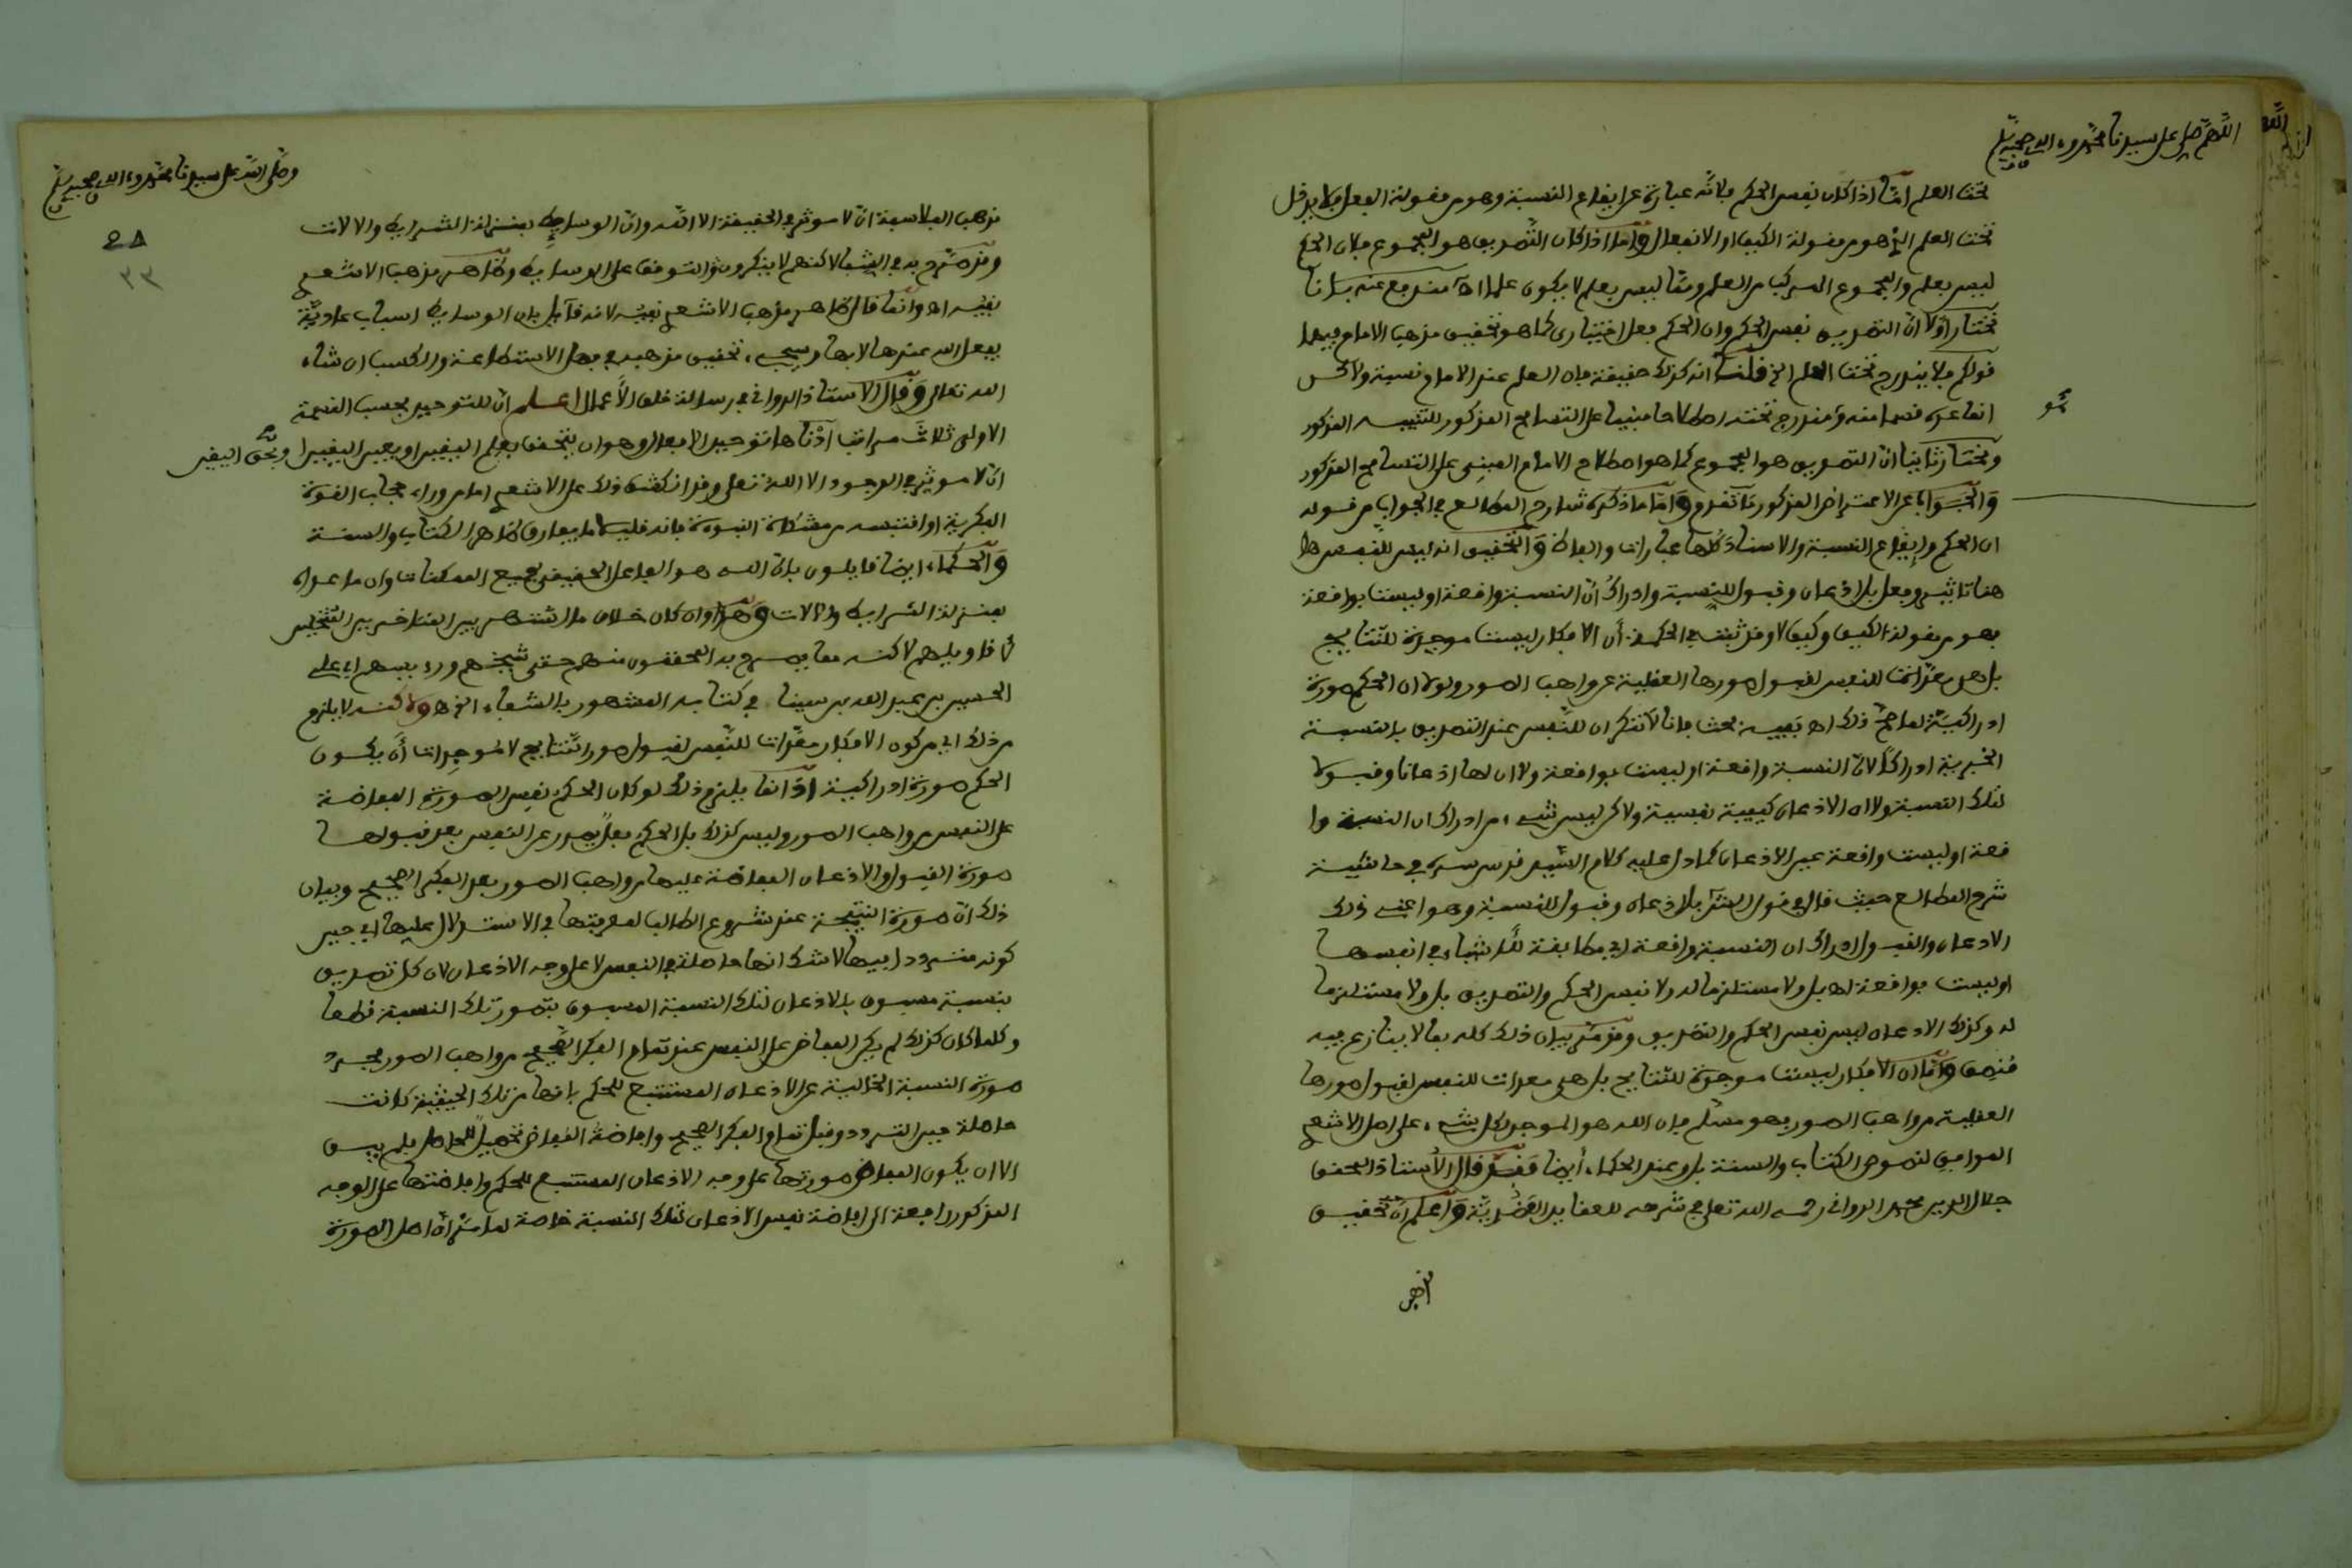 اللهم صل على سيدنا محمد وءاله وصحبه وسلم
تحت العلم امّا اذا كان نفس الحكم فلانّه عبارة عن ايقاع النسبة وهو من مقولة الفعل فلا يدخل
تحت العلم الذي هو من مقولة الكيف او الانفعال وامّا اذا كان التصديق هو المجموع فلان الحكم
ليس بعلم والمجموع المركب من العلم وممّا ليس بعلم لا يكون علما اه مندفع عنه باننا
نختار اوّلا انّ التصديق نفس الحكم وان الحكم فعل اختياري كما هو تحقيق مذهب الامام فيهما
قولكم فلا يندرج تحت العلم الخ قلنا انه كذلك حقيقة فان العلم عند الامام نسبة ولاكن
انما عدّه قسما منه ومندرج تحته اصطلاحا مبنيا على التسامح المذكور للتنبيه المذكور
ونختار ثانيا انّ التصديق هو المجموع كما هو اصطلاح الامام المبني على التسامح المذكور
والجواب عن الاعتراض المذكور ما تقدم وامّا ما ذكره شارح المطالع في الجواب من قوله
ان الحكم وايقاع النسبة والاسناد كلها عبارات والفاظ والتحقيق انه ليس للنفس ها
هنا تاثير وفعل بل اذعان وقبول للنسبة وادراك انّ النسبة واقعة او ليست بواقعة
فهو من مقولة الكيف وكيف لا وقد ثبت في الحكمة أن الافكار ليست موجدة للنتايج
بل هي معدّات للنفس لقبول صورها العقلية عن واهب الصور ولولا ان الحكم صورة
ادراكيّة لما صحّ ذلك اه ففيه بحث فانا لا ننكر ان للنفس عند التصديق بالنسبة
الخبرية ادراكا لانّ النسبة واقعة او ليست بواقعة ولا ان لها اذعانا وقبولا
لتلك النسبة ولا ان الاذعان كيفية نفسية ولاكن ليس شيء من ادراك ان النسبة وا
قعة او ليست واقعة عين الاذعان كما دل عليه كلام السّيد قدس سره في حاشية
شرح المطالع حيث قال في قول الشارح بل اذعان وقبول للنسبة وهو اعني ذلك
الاذعان والقبول ادراك ان النسبة واقعة اي مطابقة للاشياء في انفسها
او ليست بواقعة اه بل ولا مستلزما له ولا نفس الحكم والتصديق بل ولا مستلزما
له وكذلك الاذعان ليس نفس الحكم والتصديق وقد مر بيان ذلك كله بما لا ينازع فيه
منصف وامّا ان الافكار ليست موجدة للنتايج بل هي معدات للنفس لقبول صورها
العقلية من واهب الصور فهو مسلّم فان الله هو الموجد لكل شيء على اصل الاشعري
الموافق لنصوص الكتاب والسنة بل وعند الحكماء أيضا فقد قال الأستاذ المحقق
جلال الدين محمد الدواني رحمه الله تعلى في شرحه للعقايد العضدية واعلم انّ تحقيق
مذهب
وصلى الله على سيدنا محمد وءاله وصحبه وسلم
٣٣
مذهب الفلاسفة انّ لا موثر في الحقيقة الا الله وانّ الوسايط بمنزلة الشرايط والالات
وقد صرّح به في الشفا لاكنهم لا ينكرون التوقف على الوسايط وظاهر مذهب الاشعري
نفيه اه وانما قال ظاهر مذهب الاشعري نفيه لانه قايل بان الوسايط اسباب عاديّة
يفعل الله عندها لا بها وسيجيء تحقيق مذهبه في فصل الاستطاعة والكسب ان شاء
الله تعالى وقال الاستاذ الدواني في رسالة خلق الأعمال اعلم انّ للتوحيد بحسب القسمة
الاولى ثلاث مراتب أدناها توحيد الافعال وهو ان يتحقق بعلم اليقين او بعين اليقين او بحق اليقين
انّ لا موثر في الوجود الا الله تعلى وقد انكشف ذلك على الاشعري اما من وراء حجاب القوة
الفكرية او اقتبسه من مشكاة النبوة فانه قلما يفارق ظاهر الكتاب والسنة
والحكماء ايضا قايلون بانّ الله هو الفاعل الحقيقي لجميع الممكنات وان ما عداه
بمنزلة الشرايط والالات وهذا وان كان خلاف ما اشتهر بين المتاخرين المنتحلين
لاقاويلهم لاكنه مما يصرح به المحققون منهم حتى شيخهم ورءيسهم ابي علي
الحسين بن عبد الله بن سينا في كتابه المشهور بالشفاء انتهى ولاكنه لا يلزم
من ذلك اي من كون الافكار معدّات للنّفس لقبول صور النّتايج لا موجدات أن يكون
الحكم صورة ادراكية اذ انما يلزم ذلك لو كان الحكم نفس الصورة الفايضة
على النفس من واهب الصور وليس كذلك بل الحكم فعل يصدر عن النّفس بعد قبولها
صورة القبول والاذعان الفايضة عليها من واهب الصور بعد الفكر الصحيح وبيان
ذلك انّ صورة النتيجة عند شروع الطالب لمعرفتها في الاستدلال عليها اي حين
كونه متردد فيها لا شك انها حاصلة في النفس لا على وجه الاذعان لان كل تصديق
بنسبة مسبوق بالاذعان لتلك النسبة المسبوق بتصور تلك النسبة قطعا
وكلما كان كذلك لم يكن الفايض على النفس عند تمام الفكر الصّحيح من واهب الصور مجرد
صورة النسبة الخالية عن الاذعان المستتبع للحكم فانها من تلك الحيثية كانت
حاصلة حين التردد وقبل تمام الفكر الصحيح وافاضة الفياض تحصيل للحاصل فلم يبق
الا ان يكون الفايض صورتها على وجه الاذعان المستتبع للحكم وافاضتها على الوجه
المذكور راجعة الى افاضة نفس الاذعان لتلك النسبة خاصة لما مرّ انّ اصل الصورة